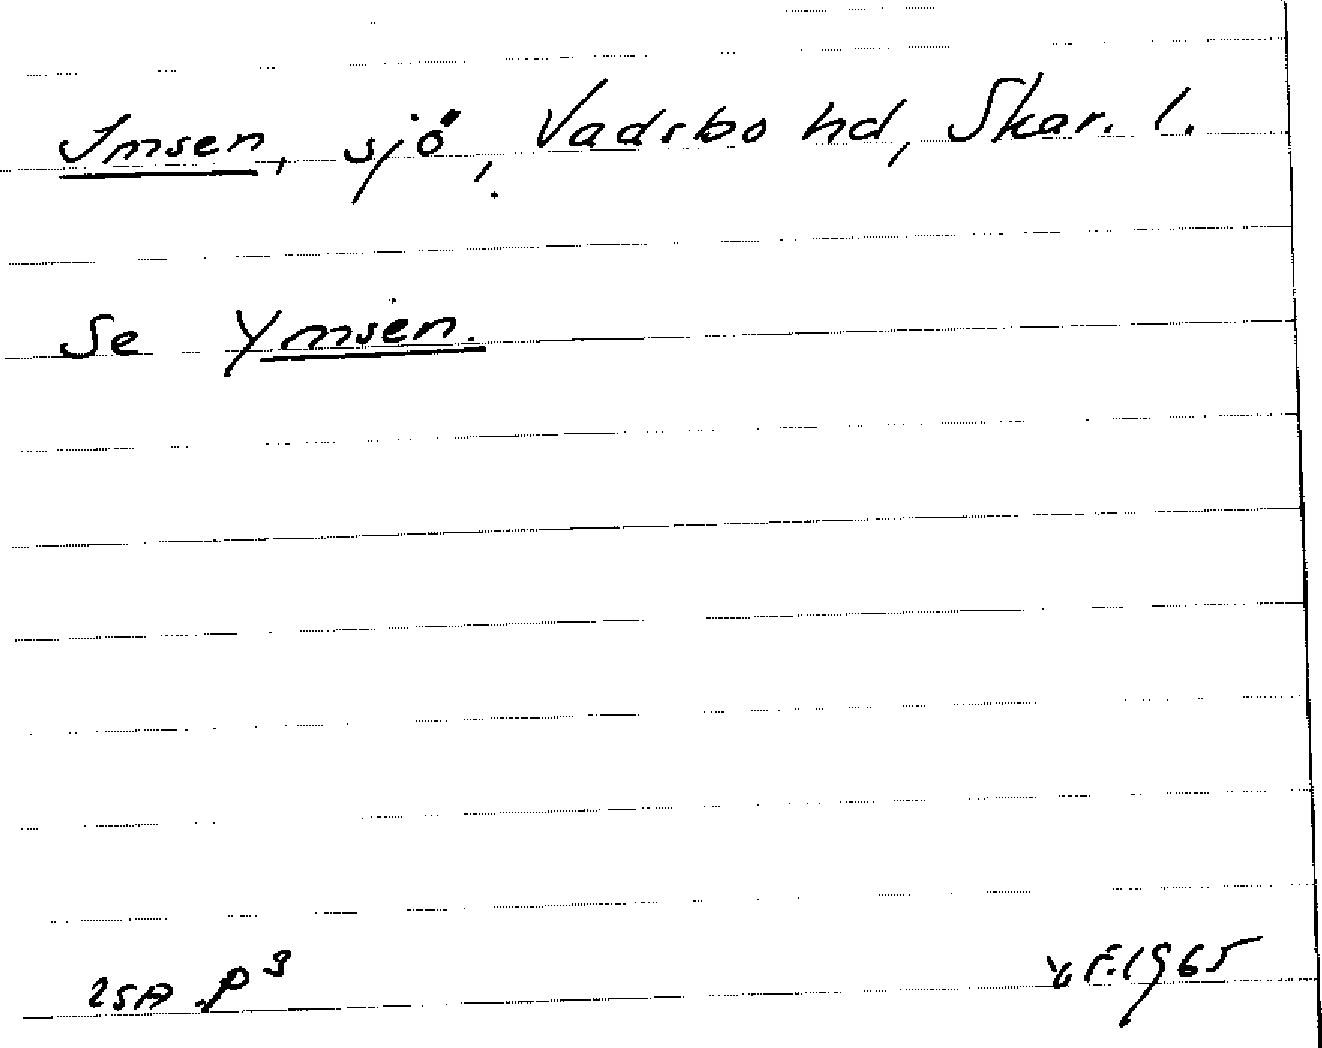 Imsen, sjö, Vadsbo hd, Skar. l.
Se Ymsen.
25A p 3
F. 1965